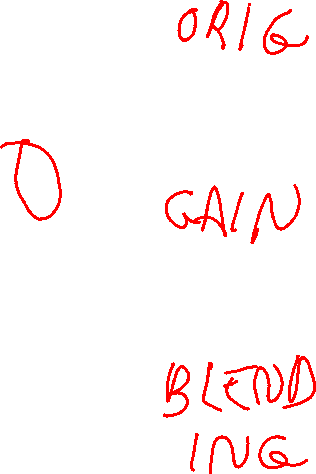 ORIG
GAIN
BLEND
ING